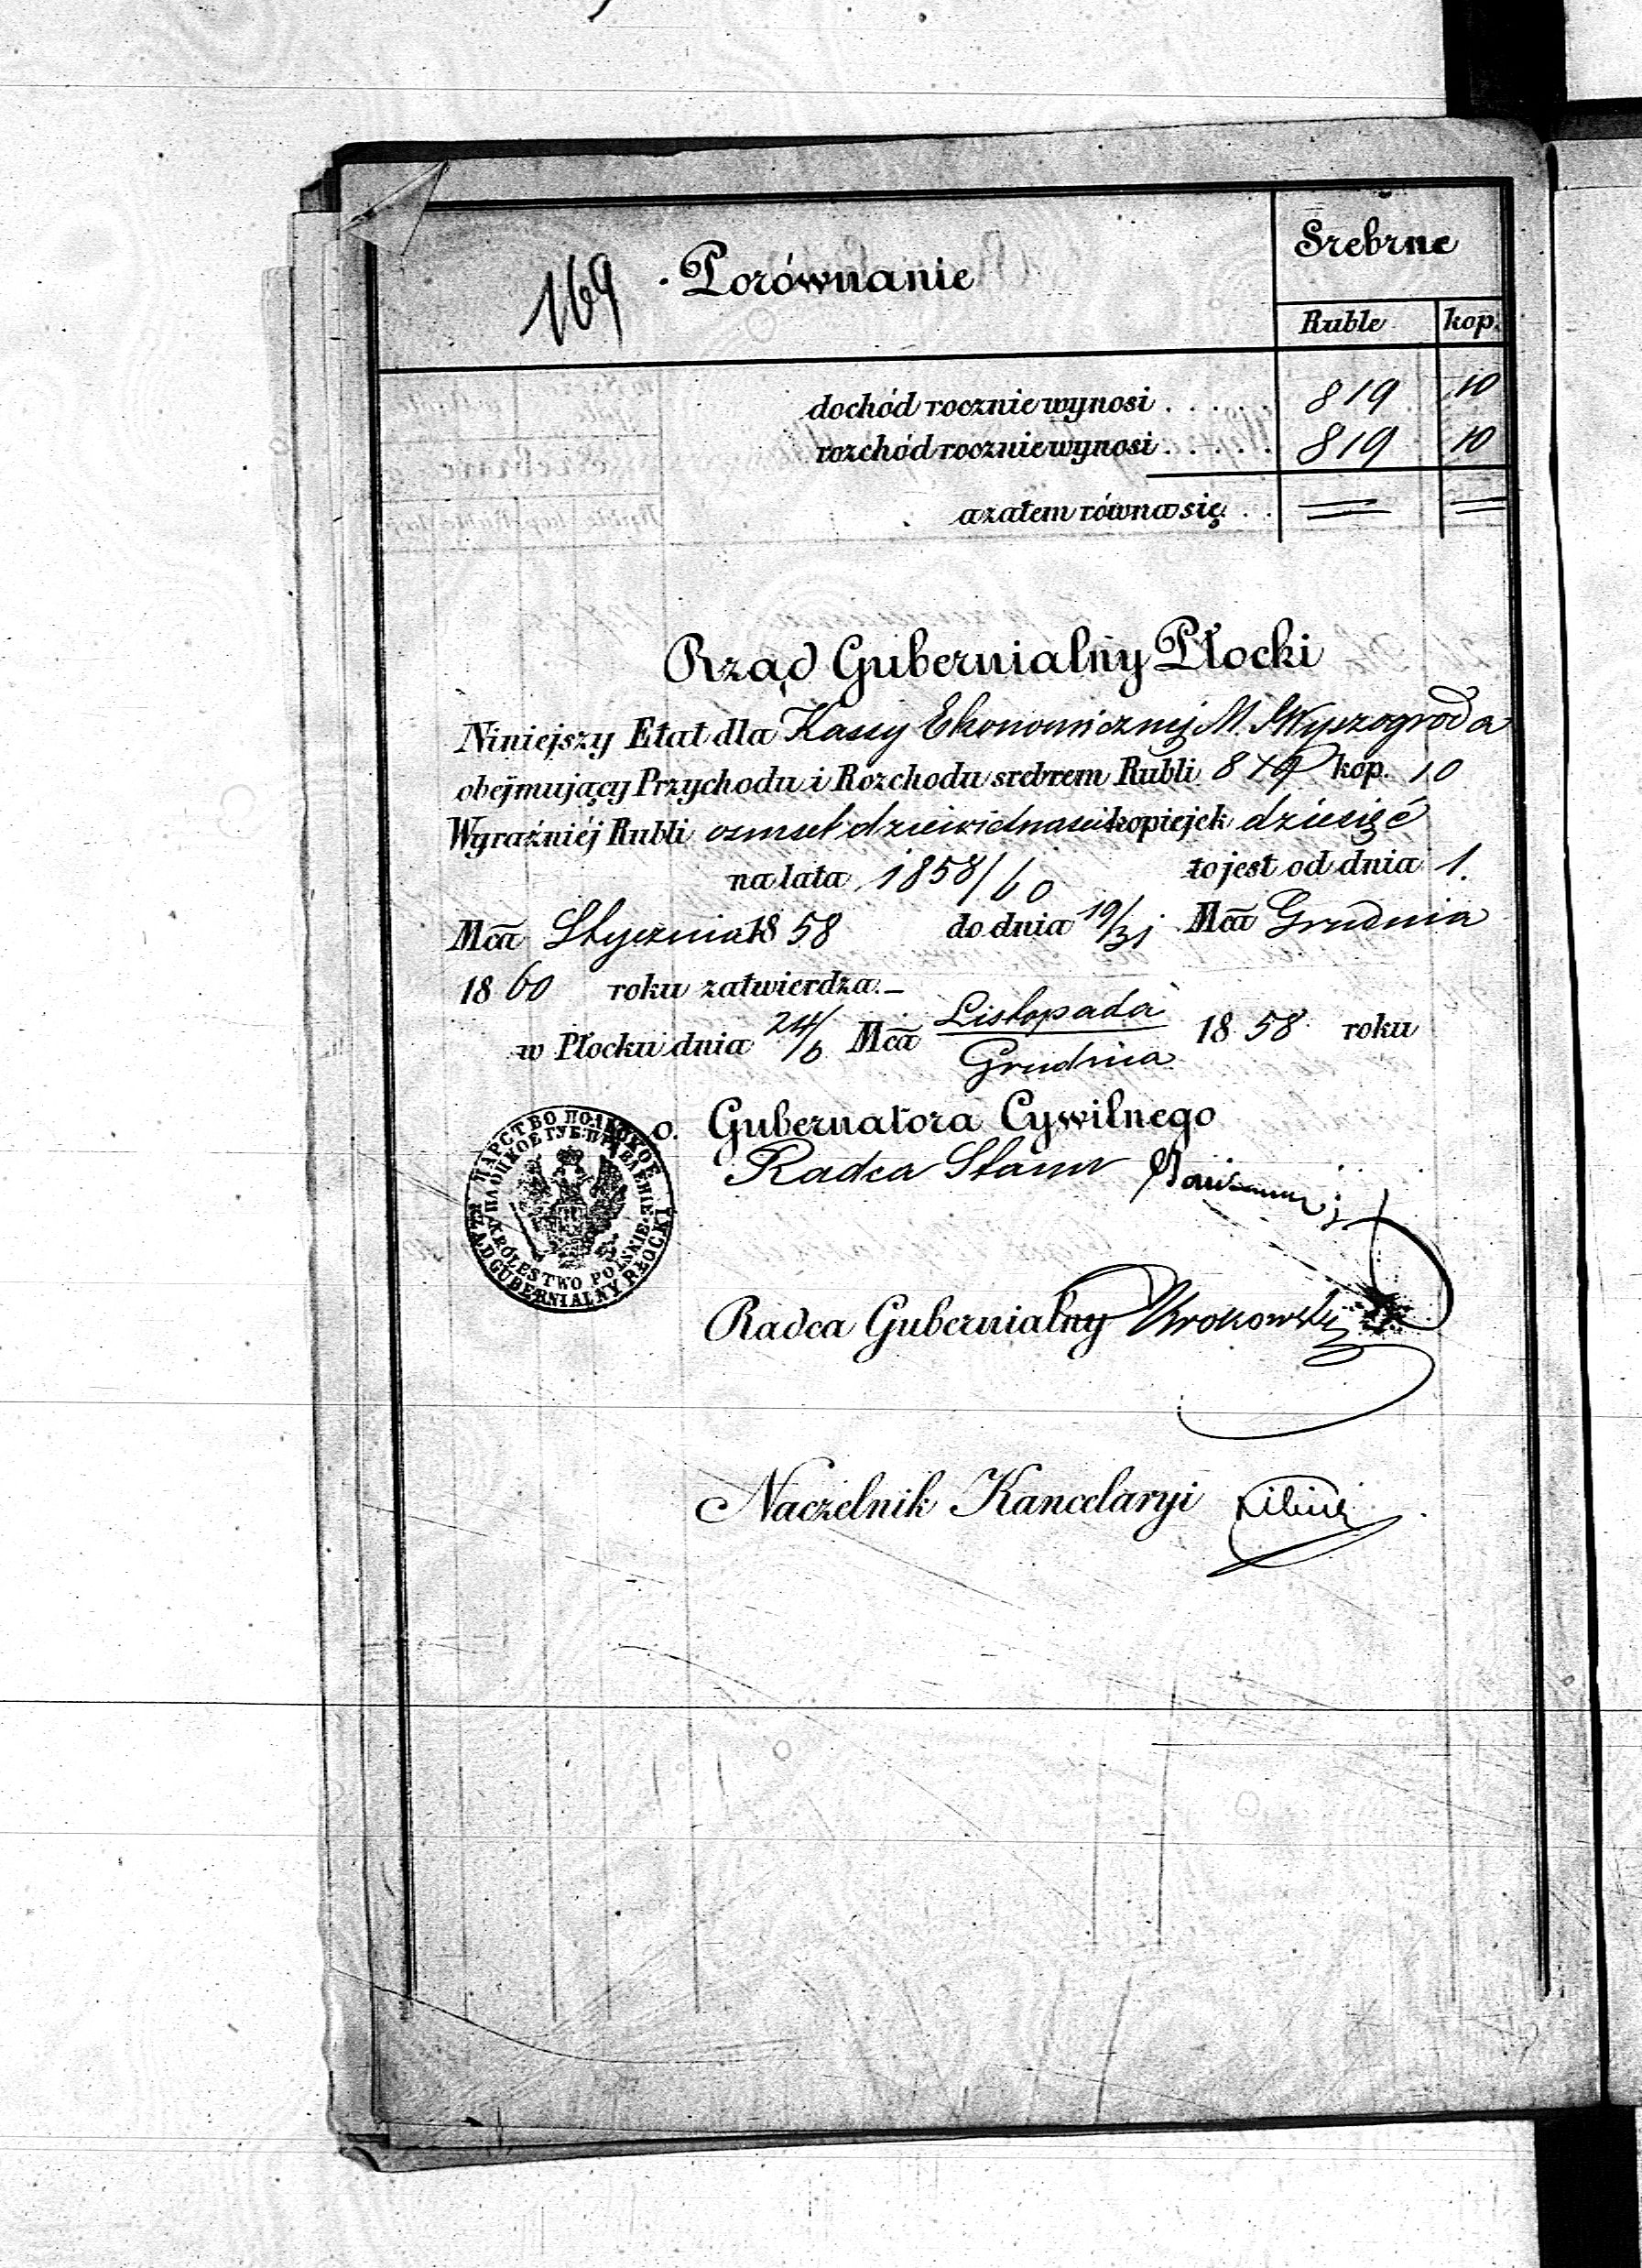 169 Porównanie
Srebrne
Ruble kop.
dochód rocznie wynosi . . . . . 819 10
rozchód rocznie wynosi . . . . . 819 10
a zatem równa się . . = =
Rząd Gubernialny Płocki
Niniejszy Etat dla Kassy Ekonomicznej M. Wyszogroda
obejmujący Przychodu i Rozchodu srebrem Rubli 819 kop. 10
Wyraźniéj Rubli osmset dziewietnascie kopiejek dziesięć
na lata 1858/60 to jest od dnia 1.
Mca Stycznia 1858 do dnia 19/31 Mca Grudnia
1860 roku zatwierdza.—
w Płocku dnia 24/6 Mca Listopada/Grudnia 1858 roku
o. Gubernatora Cywilnego
Radca Stanu
Radca Gubernialny
Naczelnik Kancelaryi
ЦАРСТВО ПОЛЬСКОЕ
ПЛОЦКОЕ ГУБ: ПРАВЛЕНІЕ
KRÓLESTWO POLSKIE
RZĄD GUBERNIALNY PŁOCKI